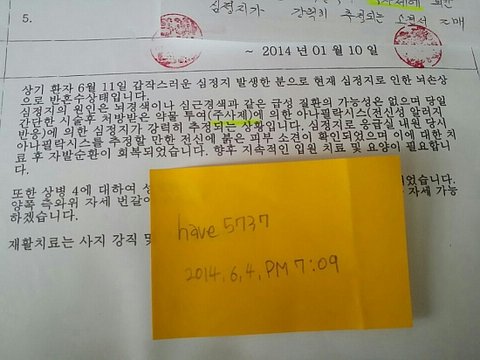 5. 심정지가 강력히 추정되는
~ 2014 년 01 월 10 일
상기 환자 6월 11일 갑작스러운 심정지 발생한 분으로 현재 심정지로 인한 뇌손상
으로 반혼수상태입니다.
심정지의 원인은 뇌경색이나 심근경색과 같은 급성 질환의 가능성은 없으며 당일
간단한 시술후 처방받은 약물 투여(주사제)에 의한 아나필락시스(전신성 알러지
반응)에 의한 심정지가 강력히 추정되는 상황입니다. 심정지로 응급실 내원 당시
아나필락시스를 추정할 만한 전신에 붉은 피부 소견이 확인되었으며 이에 대한 치
료 후 자발순환이 회복되었습니다. 향후 지속적인 입원 치료 및 요양이 필요합니
다.
또한 상병 4에 대하여 되었습니다.
양쪽 측와위 자세 번갈아 자세 가능
하겠습니다.
재활치료는 사지 강직 및
have 5737
2014. 6, 4, PM 7:09